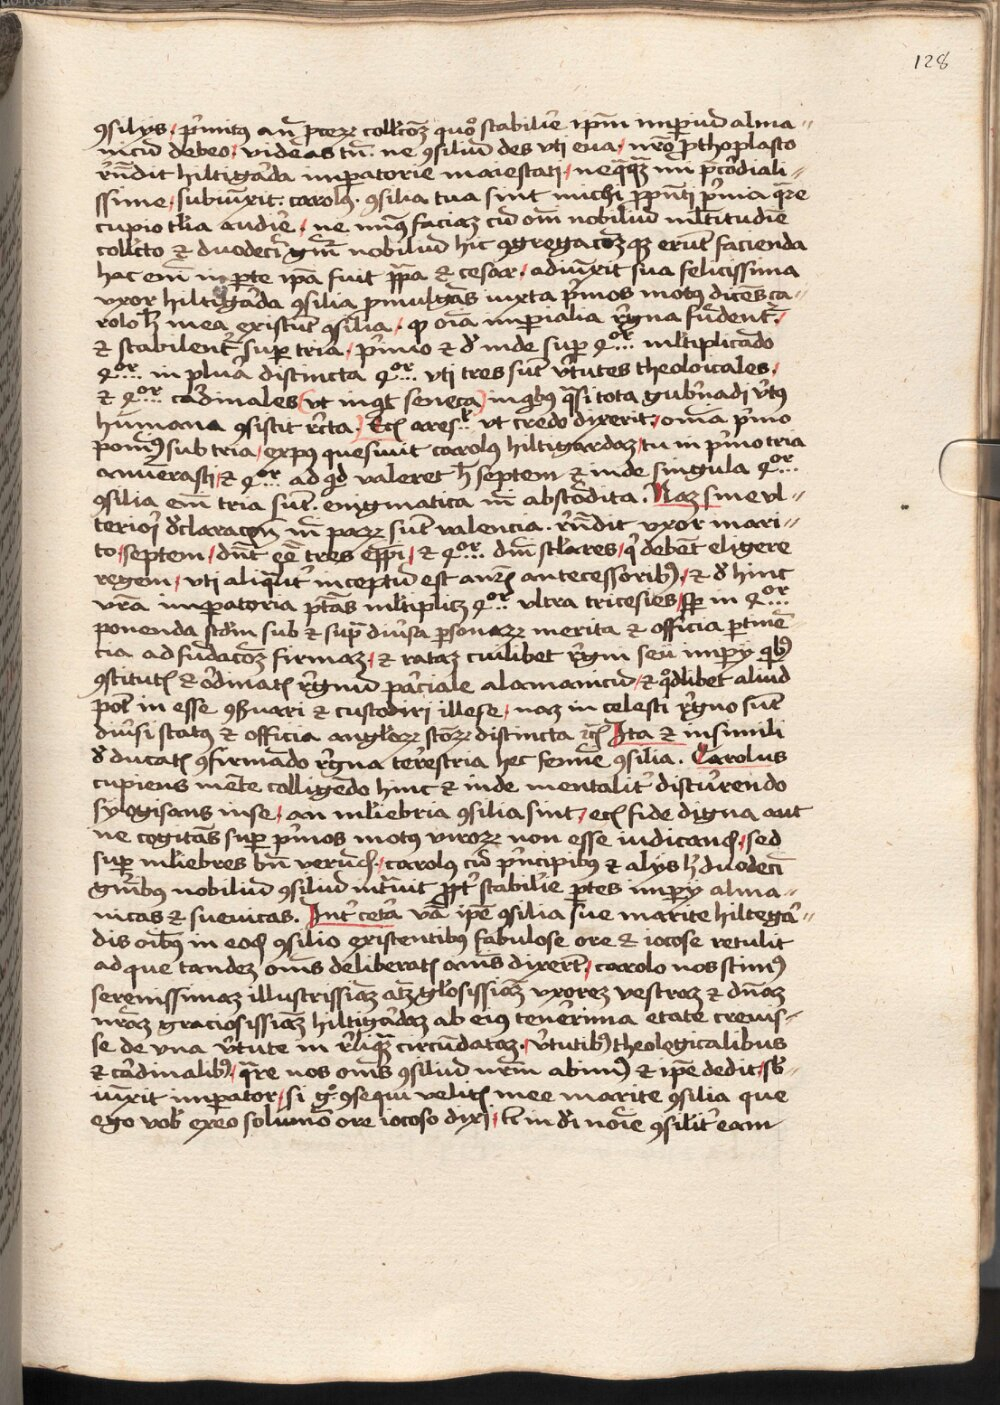 128
ꝯsilys / p̉mitꝯ an̄ ꝓceꝝ coll̉coꝫ quo̊ stabilir̉e ip̄m imꝑiuꝫ alma-
nicū debeo / videas tn̄. ne ꝯsiliuꝫ des vti eua / nr̄o ꝓthoplasto
r̄ndit hiltigar̉da imꝑatorie maiestati / neq̄q̄ꝫ mi p̄cordiali-
ssime / subiūxit: carolꝯ. ꝯsilia tua sint michi ꝓpn̄ti p̉mia q̄re
cupio tl̉ia audir̉e / ne minꝯ faciaꝫ cū om̄ nobiliū ml̉titudīe
coll̉cto & duodeci̅ gn̄a nobiliū hic ꝯgregacōꝫ qꝫ erūt facienda
hac em̄ in ꝑte ip̄a fuit p̄p̄a & cesar / adiūxit sua felicissima
vxor hiltigar̉da ꝯsilia ꝓmulgās iuxta p̉mos motꝯ dicēs ca-
rolo h̉ mea existūt ꝯsilia / ꝙ oīa imꝑialia r̉gna fūdent̉
& stabilent̉ suꝑ tria / p̉mo & d̉ inde suꝑ 4or ml̉tiplicādo
4or in plura distincta 4or vti tres sūt v̉tutes theoloicales
& 4or cardinales (vt inqt̉ seneca) in qbꝯ q̄si tota gub̉nādi v̉tꝯ
humana ꝯsistit r̉cta / Eciā ares. vt credo dixerit / omīa p̉mo
ponimꝯ sub tria / expꝯ quesiuit carolꝯ hiltigardaꝫ / tu in p̉mo tria
annūerasti / & 4or ad qd̉ valeret h̉ septem & inde singula 4or
ꝯsilia em̄ tria sūt. enigmatica m̄ abscōdita. Naꝫ sine vl-
teriori d̉claracōn m̄ paꝝ sūt valencia. r̄ndit vxor mari-
to / septem / dn̄t eē tres ep̄pi / & 4or dn̄i sc̉lares / q̉ debēt eligere
regem / vti aliqn̄t inceptū est an̄ eꝫ antecessoribꝯ / & d̉ hinc
vr̄a imꝑatoria ptās ml̉tiplicꝫ 4or vltra tricesies / sꝑ in 4or
ponenda scd̄m sub & sup̄ diūsa ꝑsonaꝝ merita & officia ꝑtinē
tia ad fūdacōꝫ firmaꝫ / & rataꝫ cuilibet r̉gni seu imꝑy qbꝯ
ꝯstitutꝭ & ordinatꝭ r̉gnuꝫ par̉ciale alamanicū / & qdlibet aliud
pot̄ in esse ꝯẞuari & custodiri illese / naꝫ in celesti r̉gno sūt
diūsi statꝯ & officia angl̉oꝝ sc̄oꝝ distincta ꝛcꝭ Ita & insimili
d̉ ducatꝭ ꝯfirmādo r̉gna ter̉restria hec femīe ꝯsilia. Carolus
cupiens mēte colligēdo hinc & inde mentalit̉ discurrendo
sylogisans inse / an ml̉iebria ꝯsilia sint / eciā fide digna aut
ne cogitās suꝑ p̉mos motꝯ viroꝝ non esse iudicand̉ / sed
suꝑ ml̉iebres bn̄ verūꝫ / carolꝯ cū p̉ncipibꝯ & alys h̉ duodeci̅
gn̄ibus nobiliū ꝯsiliū int̉uit ꝓpt̉ stabilir̉e ꝑtes imꝑy alma-
nicas & sueuicas. Int̉ cet̉a vā ip̄e ꝯsilia sue marite hiltegar̉-
dis oībꝯ in eodꝭ ꝯsilio existentibꝯ fabulose ore & iocose retulit
ad que tandeꝫ om̄s deliberatꝭ anīs dixerūt / carolo nos scimꝯ
serenissimaꝫ illustrissīaꝫ atqꝫ gl̉osissīaꝫ vxoreꝫ vestraꝫ & dn̄aꝫ
nr̄aꝫ graciosissīaꝫ hiltigar̉daꝫ ab eiꝯ tenerrima etate creuis-
se de vna v̉tute in r̉liqua circūdataꝫ. v̉tutibꝯ theologicalibus
& cardinalibꝯ / q̄re nos om̄s ꝯsiliū nr̄m abimꝯ & ip̄e dedit / sb̉-
iūxit imꝑator / si gͦ ꝯsequi velitꝭ mee marite ꝯsilia que
ego vob̉ exeo solumō ore iocoso dixi / tn̄ in d̉i noīe ꝯsilit̉ eam